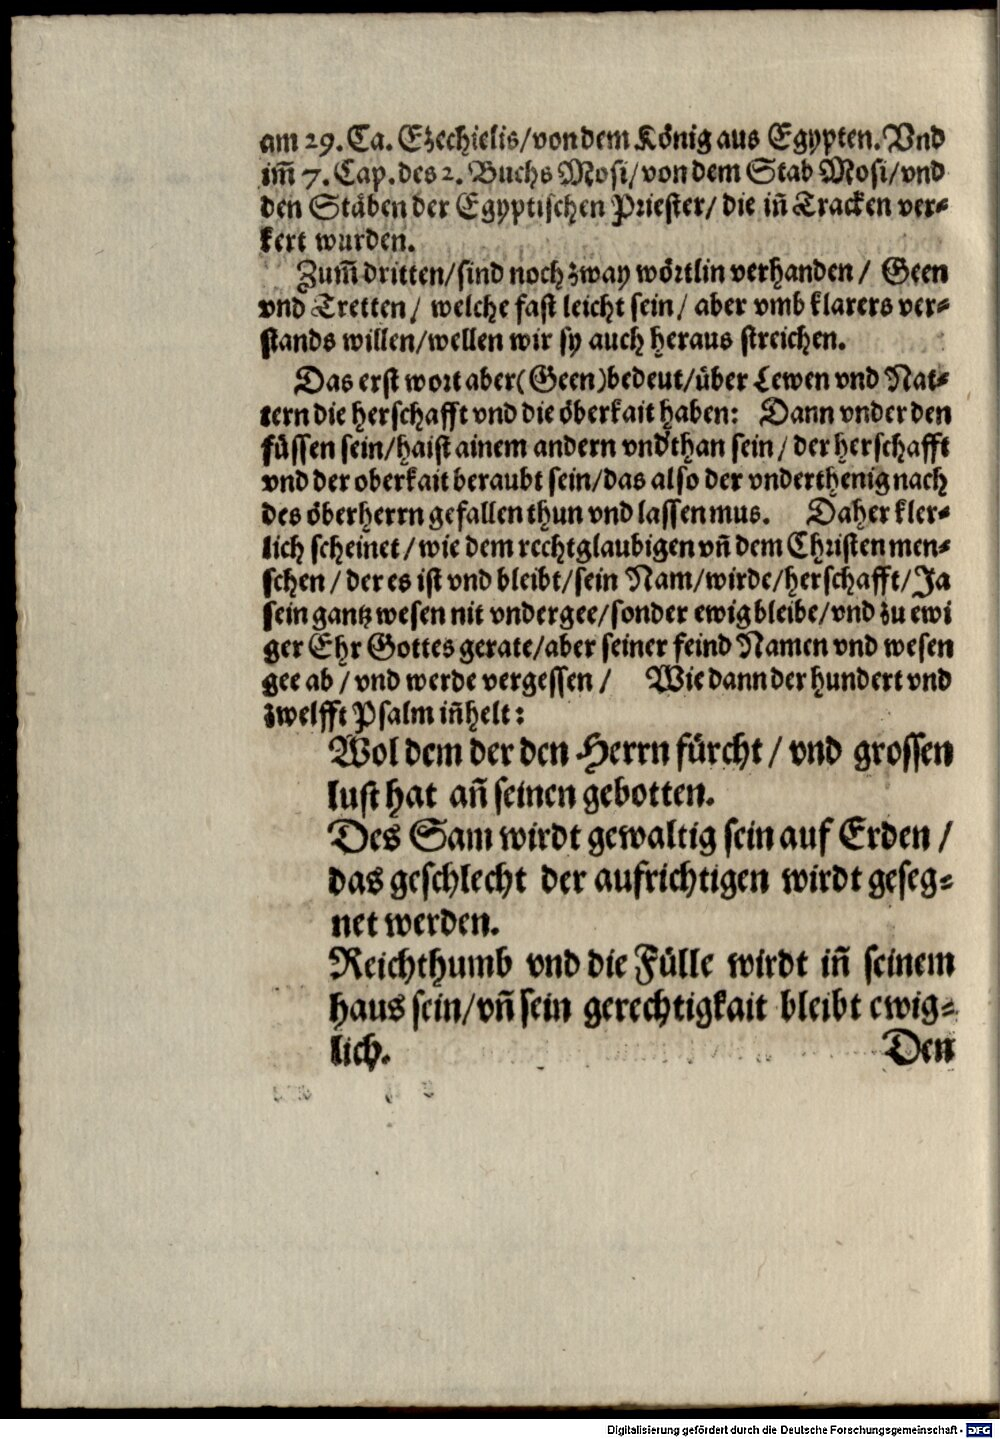 am 29. Ca. Ezechielis/von dem König aus Egypten. Vnd
im̃ 7. Cap. des 2. Buchs Mosi/von dem Stab Mosi/vnd
den Stäben der Egyptischen Priester/ die iñ Tracken ver-
kert wurden.
Zum̃ dritten/sind noch zway wörtlin verhanden / Geen
vnd Tretten / welche fast leicht sein / aber vmb klarers ver-
stands willen/wellen wir sy auch heraus streichen.
Das erst wort aber (Geen) bedeut/über Lewen vnd Nat-
tern die herschafft vnd die öberkait haben: Dann vnder den
füssen sein/haist ainem andern vnd'than sein / der herschafft
vnd der oberkait beraubt sein/das also der vnderthenig nach
des öberherrn gefallen thun vnd lassen mus. Daher kler-
lich scheinet / wie dem rechtglaubigen vñ dem Christen men-
schen / der es ist vnd bleibt/sein Nam/wirde/herschafft/Ja
sein gantz wesen nit vndergee/sonder ewig bleibe/vnd zu ewi
ger Ehr Gottes gerate/aber seiner feind Namen vnd wesen
gee ab / vnd werde vergessen / Wie dann der hundert vnd
zwelfft Psalm iñhelt:
Wol dem der den Herrn fürcht / vnd grossen
lust hat añ seinen gebotten.
Des Sam wirdt gewaltig sein auf Erden /
das geschlecht der aufrichtigen wirdt geseg-
net werden.
Reichthumb vnd die Fülle wirdt iñ seinem
haus sein/vñ sein gerechtigkait bleibt ewig-
lich. Den
Digitalisierung gefördert durch die Deutsche Forschungsgemeinschaft - DFG